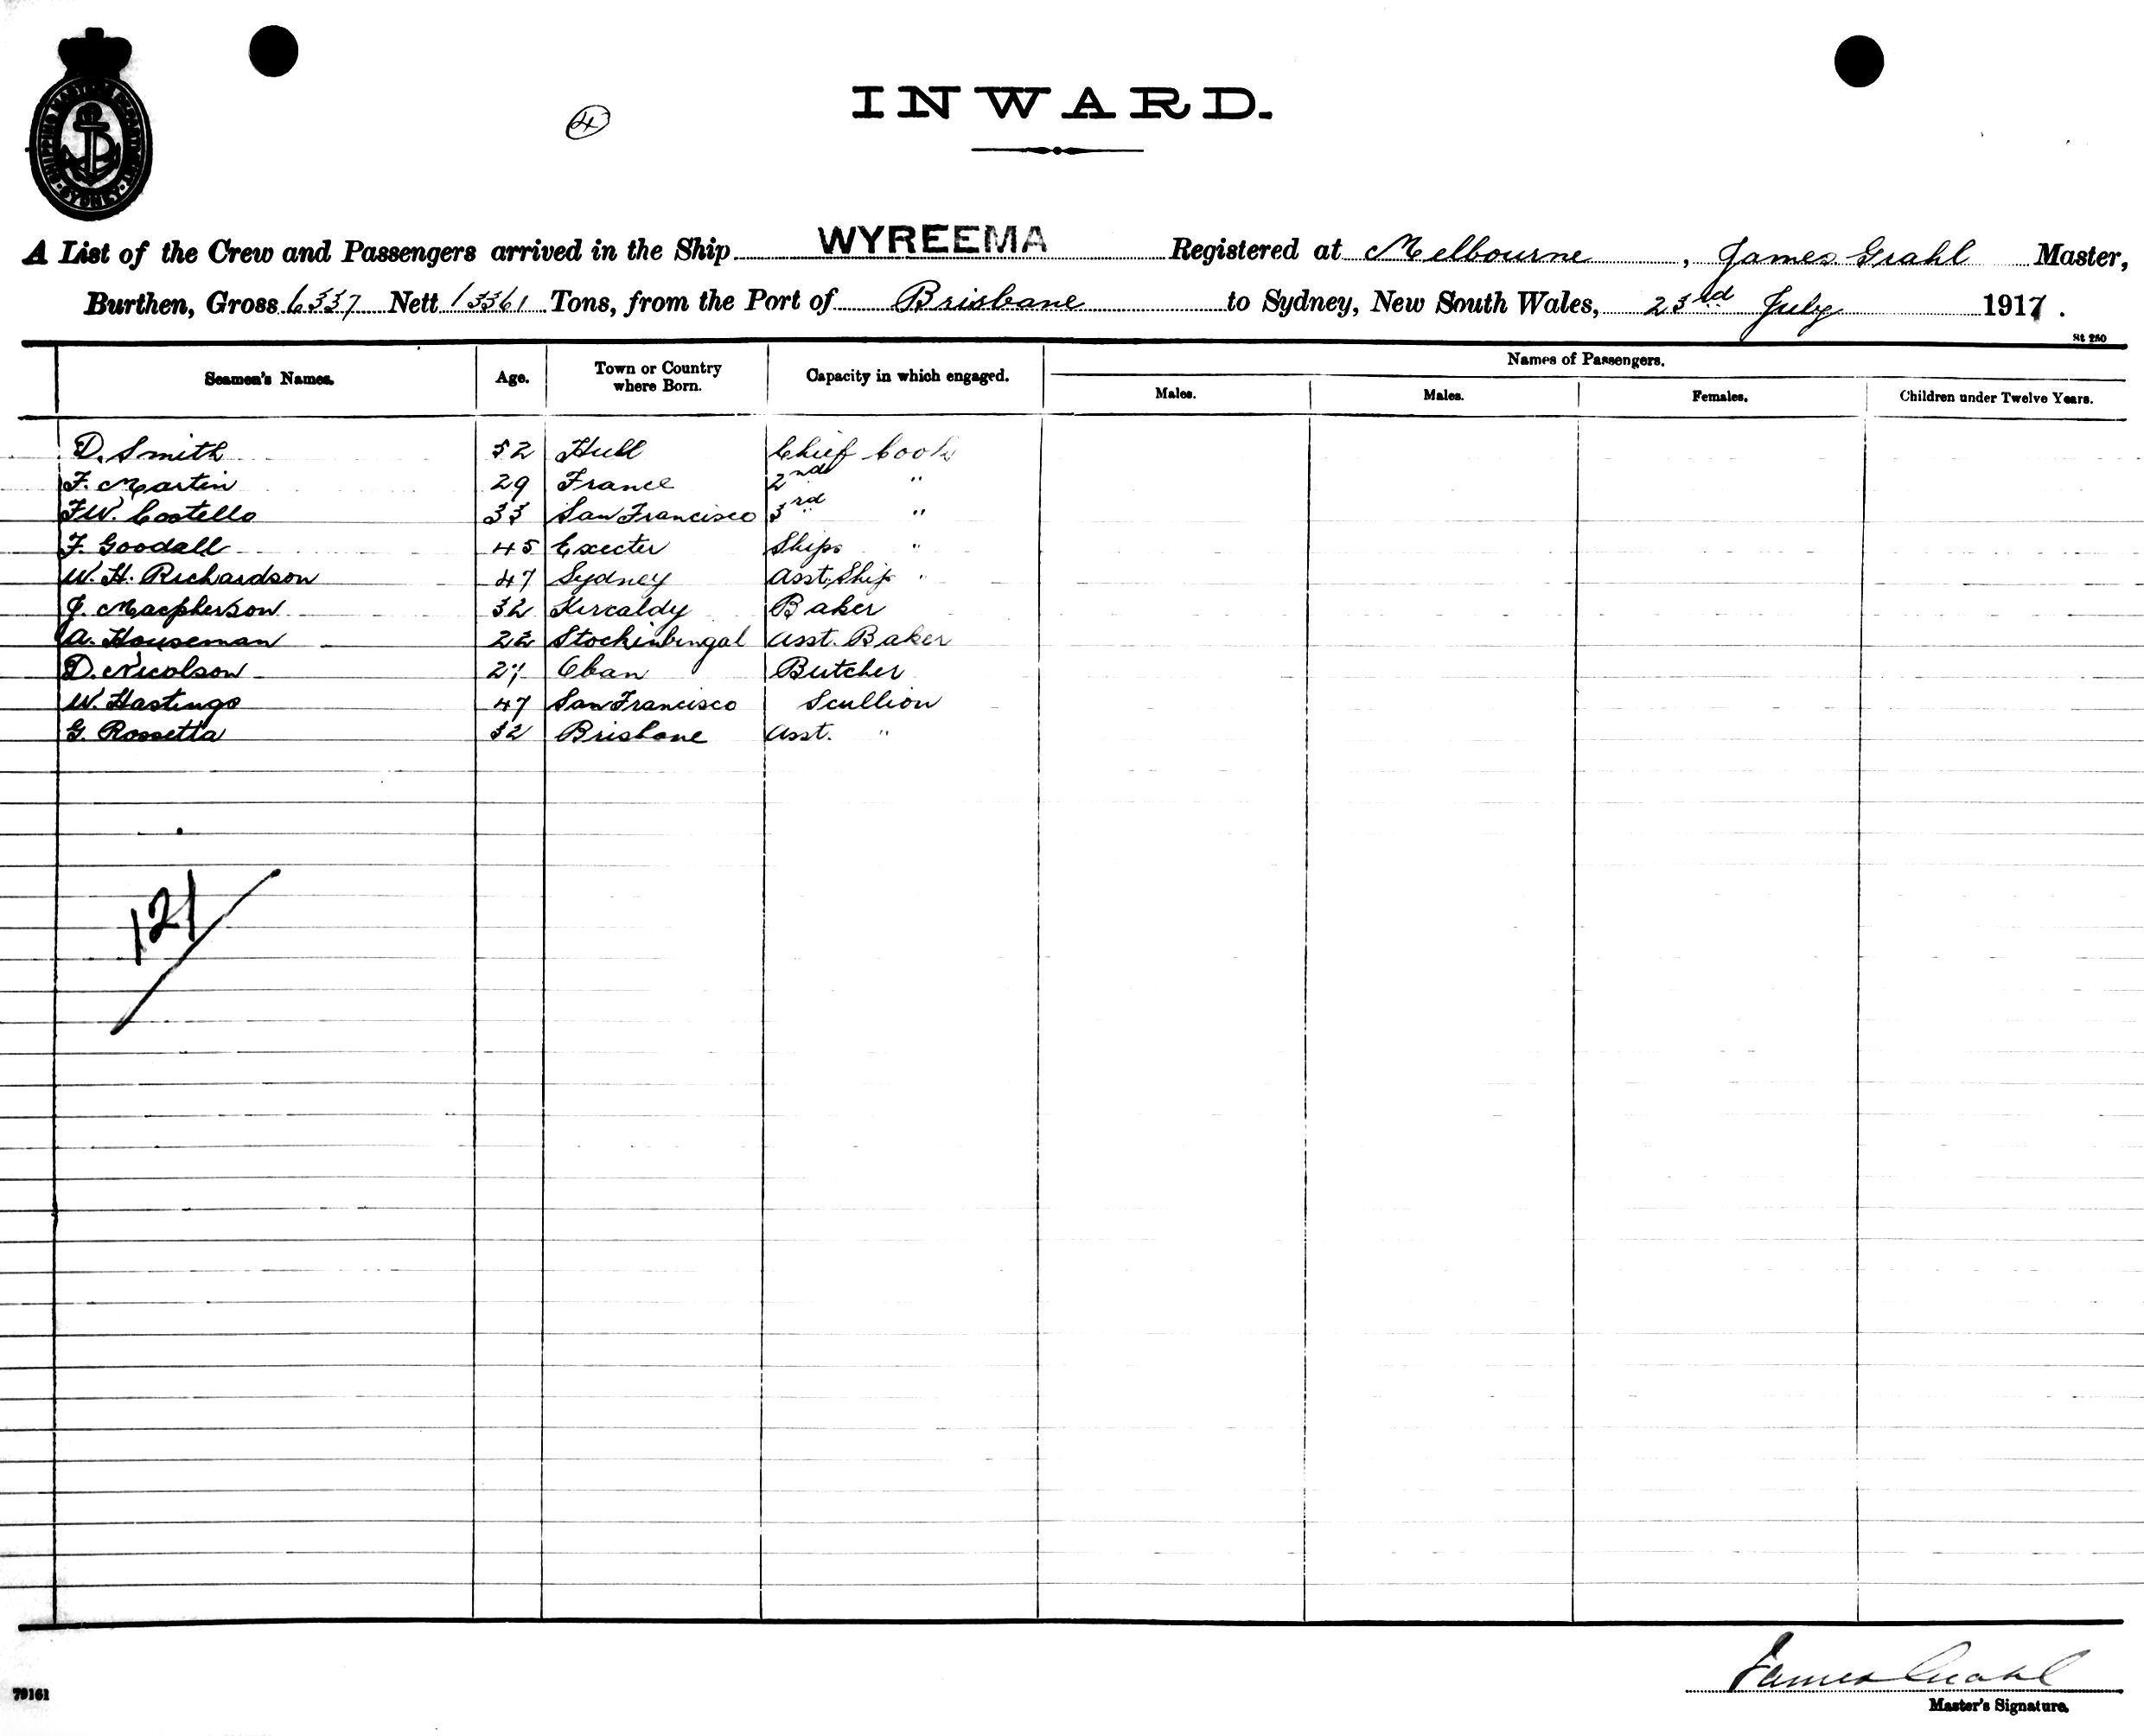 SHIPPING MASTER'S DEPARTMENT · SYDNEY ·
4
INWARD.
A List of the Crew and Passengers arrived in the Ship WYREEMA Registered at Melbourne, James Grahl Master,
Burthen, Gross 6337 Nett 13361 Tons, from the Port of Brisbane to Sydney, New South Wales, 23rd July 1917.
St 250
Seamen's Names. Age. Town or Country where Born. Capacity in which engaged. Names of Passengers.
Males. Males. Females. Children under Twelve Years.
D. Smith 52 Hull Chief Cook
F. Martin 29 France 2nd "
F.W. Costello 33 San Francisco 3rd "
F. Goodall 45 Execter Ships "
W. H. Richardson 47 Sydney Asst. Ship "
J. Macpherson 32 Kircaldy Baker
A. Houseman 22 Stockinbingal Asst. Baker
D. Nicolson Oban Butcher
W. Hastings 47 San Francisco Scullion
G. Rossetta 32 Brisbane Asst. "
121
James Grahl
79161
Master's Signature.